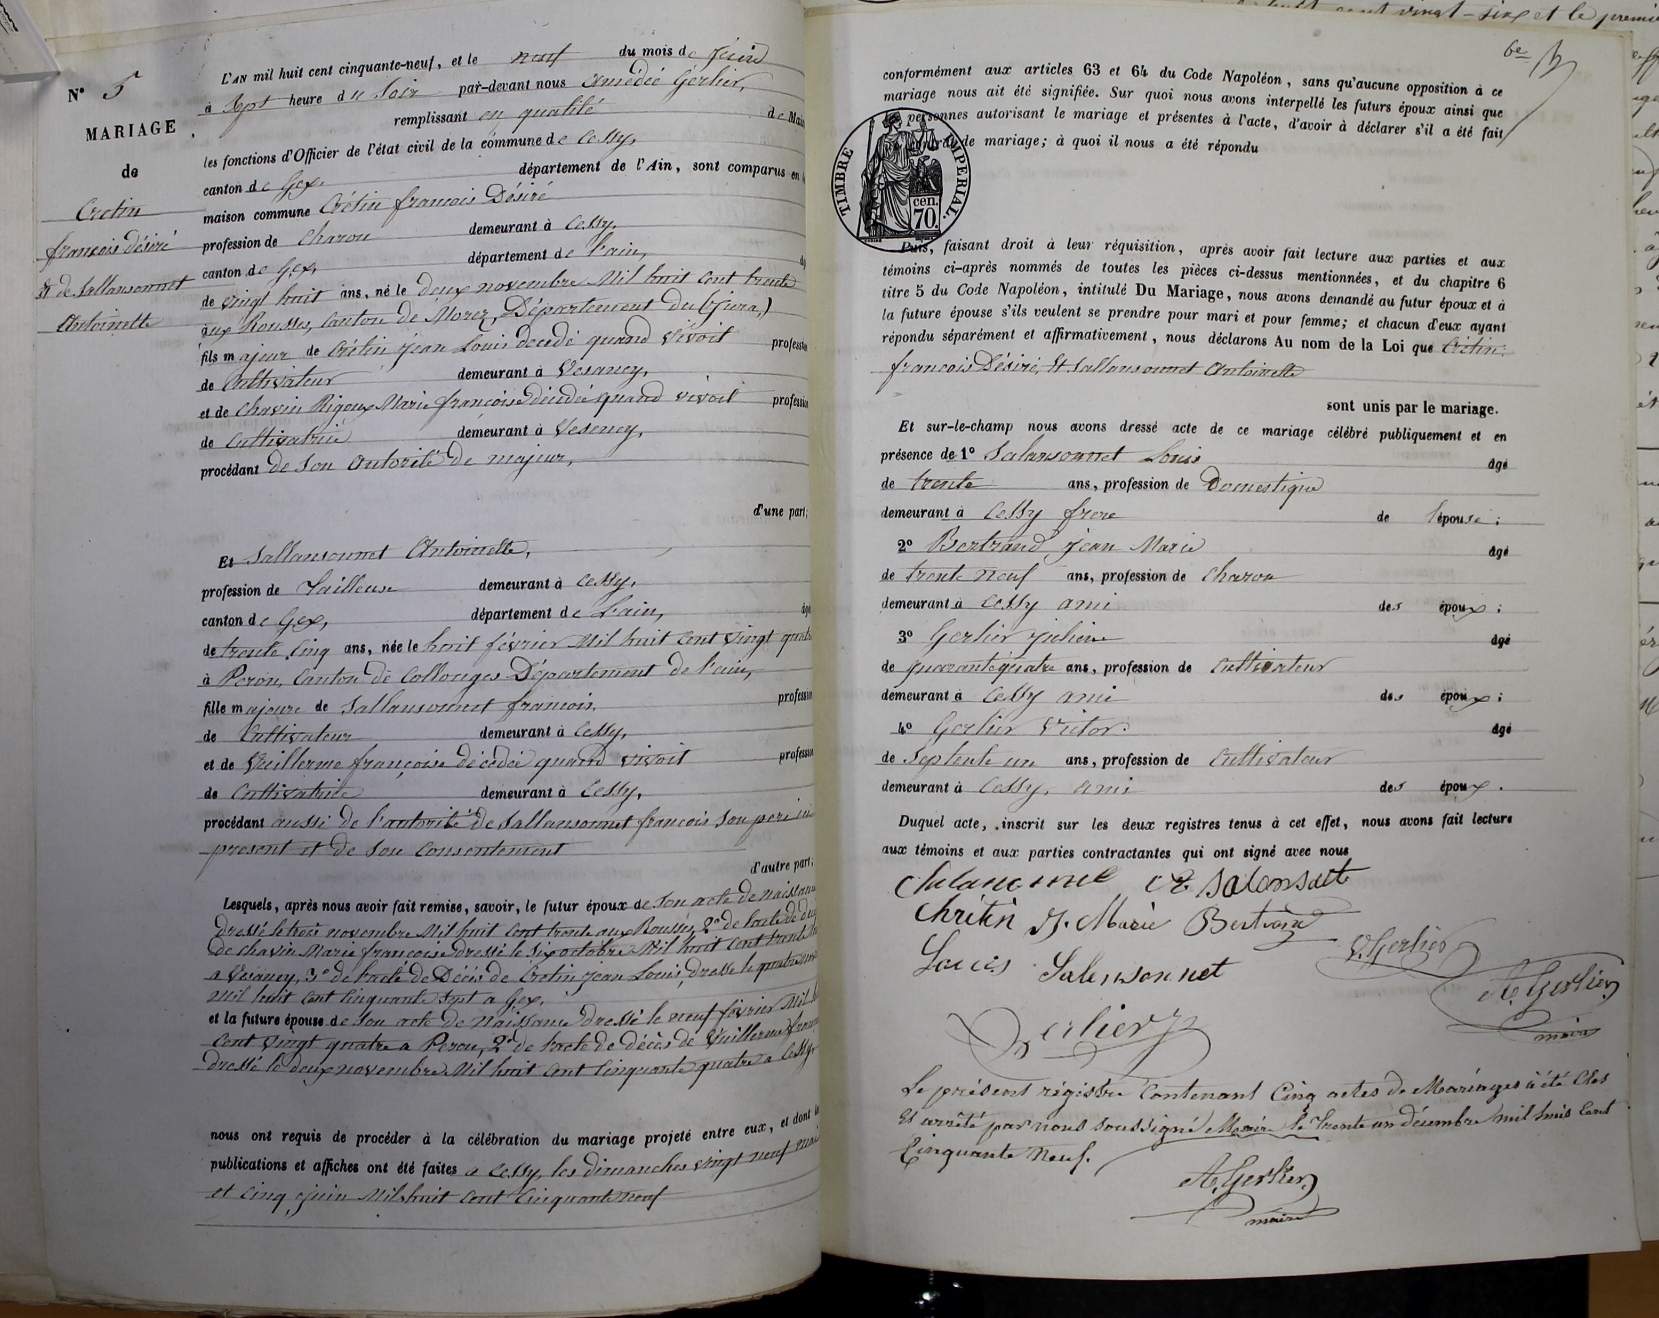 N° 5
MARIAGE
de
Cretin
françois désiré
et de Sallansonnet
Antoinette
L'AN mil huit cent cinquante-neuf, et le neuf du mois de juin
à sept heure du soir par-devant nous Amédée Gerlier,
remplissant en qualité de Maire
les fonctions d'Officier de l'état civil de la commune de Cessy,
canton de Gex, département de l'Ain, sont comparus en la
maison commune Crétin françois Désiré
profession de Charon demeurant à Cessy,
canton de Gex, département de l'ain,
de vingt huit ans, né le deux novembre Mil huit Cent trente
aux Rousses, Canton de Morez, Département du (Jura,)
fils majeur de Crétin Jean Louis décédé quand vivoit profession
de Cultivateur demeurant à Vesancy,
et de Chavin Rigoux Marie françoise décédée quand vivoit profession
de Cultivatrice demeurant à Vesency,
procédant de Son Autorité de majeur,
d'une part;
Et Sallansonnet Antoinette,
profession de Tailleuse demeurant à Cessy,
canton de Gex, département de l'ain, âgé
de trente cinq ans, née le huit février Mil huit Cent vingt quatre
à Peron, Canton de Collonges Département de l'ain,
fille majeure de Sallansonnet francois, profession
de Cultivateur demeurant à Cessy,
et de Vuillerme françoise décédée quand vivoit profession
de Cultivatrice demeurant à Cessy,
procédant aussi de l'autorité de Sallansonnet francois Son père ici
present et de Son Consentement
d'autre part;
Lesquels, après nous avoir fait remise, savoir, le futur époux de Son acte de naissance
dressé le trois novembre Mil huit Cent trente aux Rousses, 2° de l'acte de
de Chavin Marie francoise dressé le Six octobre Mil huit Cent trente
a Vesancy, 3° de l'acte de Décès de Cretin Jean Louis, dressé le quatre
Mil huit Cent Cinquante Sept a Gex,
et la future épouse de Son acte de Naissance dressé le neuf février Mil
Cent vingt quatre a Peron, 2° de l'acte de décès de Vuillerme
dressé le deux novembre Mil huit Cent Cinquante quatre a Cessy,
nous ont requis de procéder à la célébration du mariage projeté entre eux, et dont les
publications et affiches ont été faites a Cessy, les dimanches vingt neuf mai
et Cinq Juin Mil huit Cent Cinquante neuf
6e
conformément aux articles 63 et 64 du Code Napoléon, sans qu'aucune opposition à ce
mariage nous ait été signifiée. Sur quoi nous avons interpellé les futurs époux ainsi que
personnes autorisant le mariage et présentes à l'acte, d'avoir à déclarer s'il a été fait
de mariage; à quoi il nous a été répondu
TIMBRE IMPERIAL.
70 cen.
Puis, faisant droit à leur réquisition, après avoir fait lecture aux parties et aux
témoins ci-après nommés de toutes les pièces ci-dessus mentionnées, et du chapitre 6
titre 5 du Code Napoléon, intitulé Du Mariage, nous avons demandé au futur époux et à
la future épouse s'ils veulent se prendre pour mari et pour femme; et chacun d'eux ayant
répondu séparément et affirmativement, nous déclarons Au nom de la Loi que Crétin
francois Désiré, Et Sallansonnet Antoinette
sont unis par le mariage.
Et sur-le-champ nous avons dressé acte de ce mariage célébré publiquement et en
présence de 1° Salansonnet Louis âgé
de trente ans, profession de Domestique
demeurant à Cessy frere de l'épouse;
2° Bertrand Jean Marie âgé
de trente neuf ans, profession de Charon
demeurant à Cessy ami des époux;
3° Gerlier Julien âgé
de quarante quatre ans, profession de Cultivateur
demeurant à Cessy ami des époux;
4° Gerlier Victor. âgé
de Septente un ans, profession de Cultivateur
demeurant à Cessy, ami des époux.
Duquel acte, inscrit sur les deux registres tenus à cet effet, nous avons fait lecture
aux témoins et aux parties contractantes qui ont signé avec nous
Chrétin J. Marie Bertrand
Louis Salensonnet
V. Gerlier
A. Gerlier
maire
Gerlier
Le présent régistre Contenant Cinq actes de Mariages a été Clos
Et arrêté par nous soussigné Maire le trente un décembre mil huit Cent
Cinquante Neuf.
A. Gerlier
maire